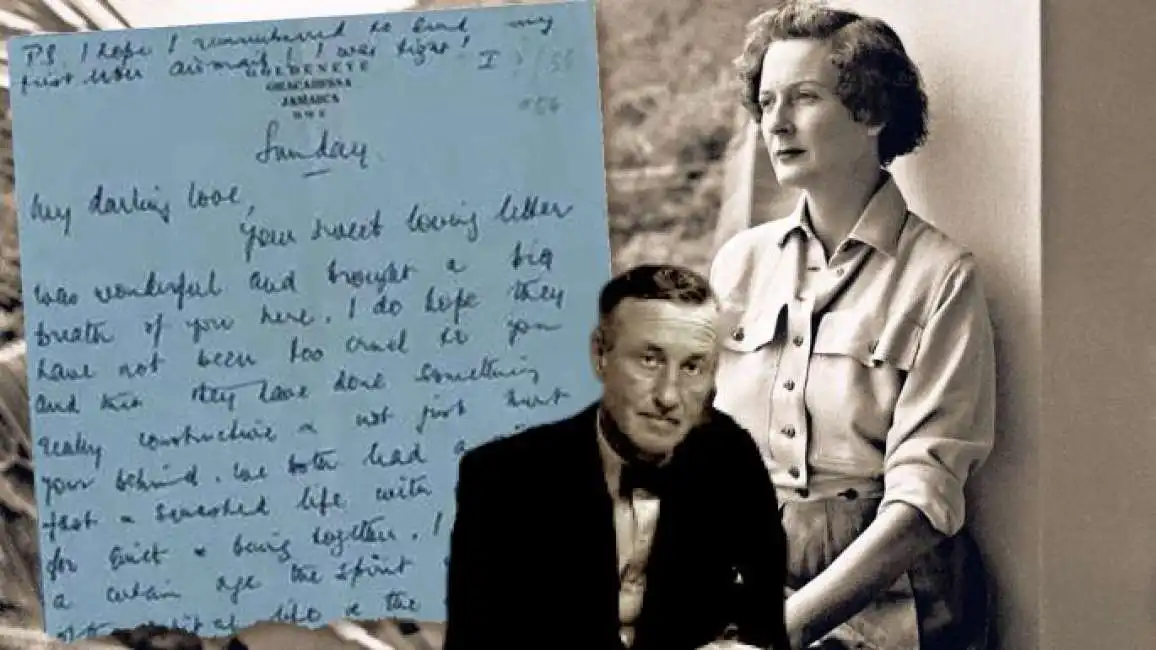 P.S. I hope I remembered to send my
first airmail! I was tight! I
GOLDENEYE
ORACABESSA
JAMAICA
B W I
Sunday
My darling love,
Your sweet loving letter
was wonderful and brought a big
breath of you here. I do hope they
have not been too cruel to you
and that they have done something
really constructive & not just hurt
your behind. We both had a
fast & life with
for quiet & being together. I
a certain age the spirit
life & the